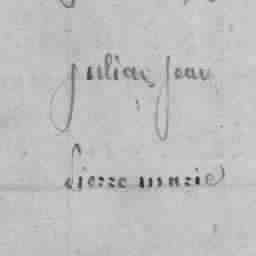 julien jean
pierre marie